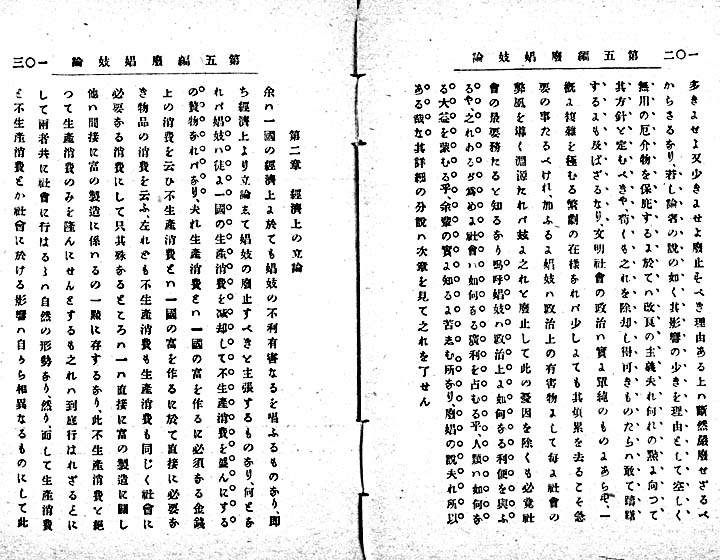 一〇二 第五編廢娼妓論
多きませよ又少きませよ廢止そべき理由ある上ハ斷然嚴廢せざるべ
からさるあり若し論者の說の如く其影響の少きを理由として空しく
無用の厄介物を保庇するよ於てハ改良の主義夫れ何れの點よ向つて
其方針と定むべきや、苟くも之れを除却し得可きものたらハ敢て躊躇
するよも及ばざるなり、文明社會の政治ハ實よ單純のものよあらぞ、一
槪よ複雜を極むる繁劇の在樣あれバ少しよても其煩累を去るこそ急
要の事たるべけれ、加ふるよ娼妓ハ政治上の有害物よして每よ社會の
弊風を導く淵源たれバ玆よ之れと廢止して此の憂因を除くも必竟社
會の最要務たると知るあり嗚呼娼妓ハ政治上よ如何ある利便を與ふ
るや、之れあるが爲めよ社會ハ如何ある廣利を占むる乎、人類ハ如何あ
る大益を蒙むる乎余輩の實よ知るよ苦しむ所あり、廢娼の說夫れ所以
ある哉な其詳細の分說ハ次章を見て之れを了せん
第五編廢娼妓論 一〇三
第二章 經濟上の立論
余ハ一國の經濟上よ於ても娼妓の不利有害なるを唱ふるものあり、即
ち經濟上より立論して娼妓の廢止すべきと主張するものあり、何とあ
れバ娼妓ハ徒よ一國の生產消費を減却して不生產消費を盛んにする
の贅物あれバあり、夫れ生產消費とハ一國の富を作るに必須ある金錢
上の消費を云ひ不生產消費とハ一國の富を作るに於て直接に必要あ
き物品の消費を云ふ、左れども不生產消費も生產消費も同じく社會に
必要ある消費にして只其殊あるところハ一ハ直接に富の製造に關し
他ハ間接に富の製造に係ハるの一點に存するあり、此不生產消費と絕
つて生產消費のみを隆んにせんとするも之れハ到底行はれざるとに
して兩者共に社會に行はるゝハ自然の形勢あり然り、而して生產消費
と不生產消費とが社會に於ける影響ハ自うら相異なるものにして此